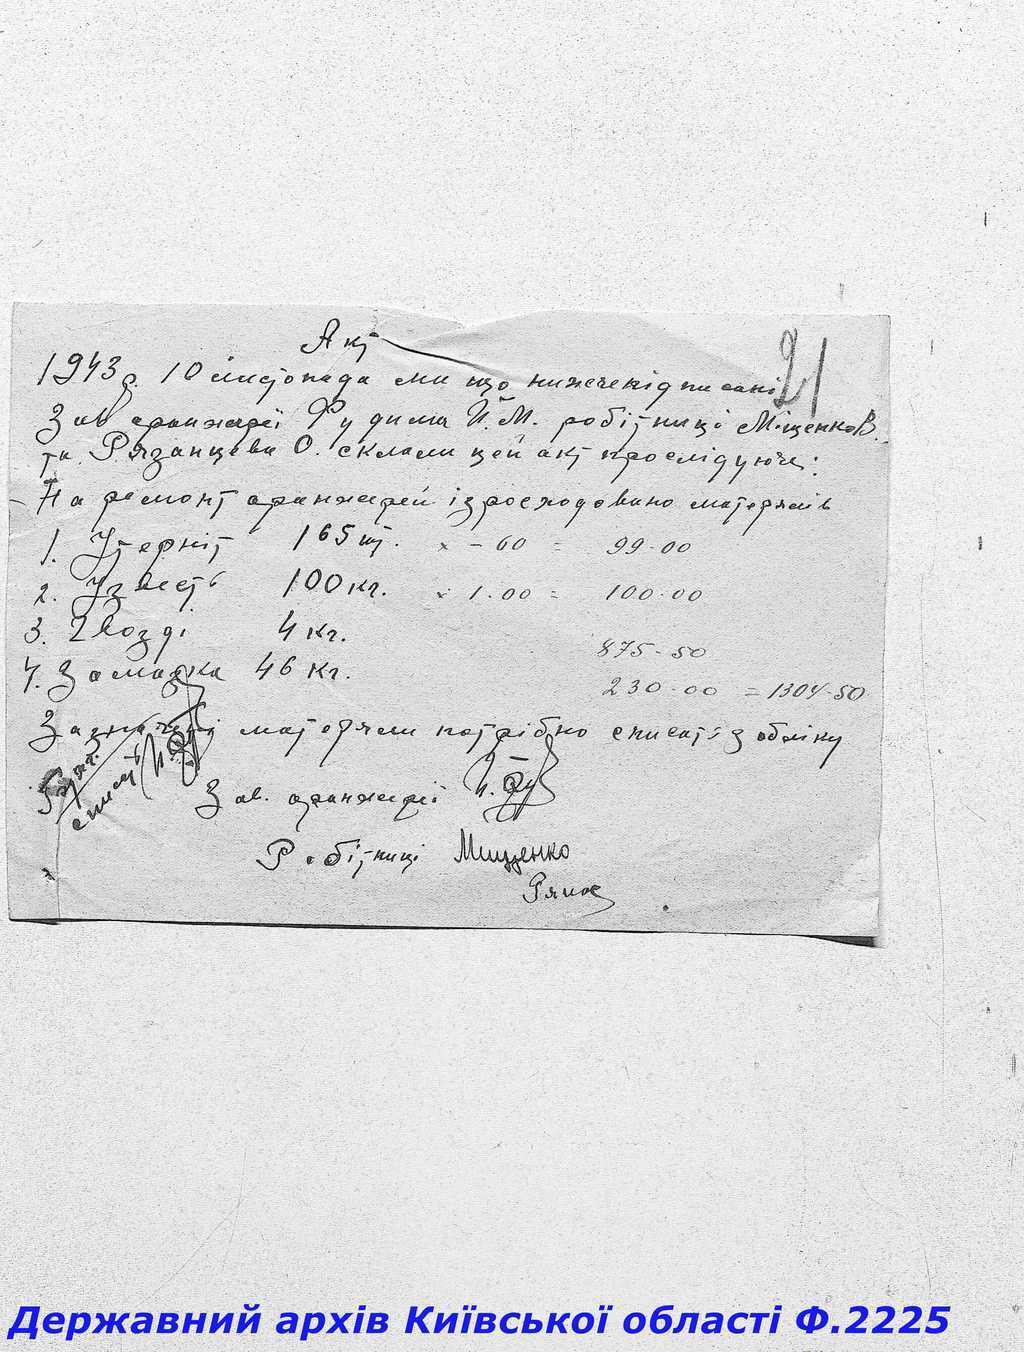 Акт
21
1943 р. 10 листопада ми що нижчепідписані
Зав оранжереї Рудима Й.М. робітниці Міщенко В.
та Рязанцева О. склали цей акт про слідуюче:
На ремонт оранжерей ізросходовано матерялів
1. Етерніт 165 шт. x - 60 = 99-00
2. Узвесть 100 кг. x 1.00 = 100-00
3. Гвозді 4 кг. 875-50
4. Замазка 46 кг. 230-00 = 1304-50
Зазначені матеряли потрібно списати з обліку
списать
Зав. оранжереї
Робітниці Мищенко
Державний архів Київської області Ф.2225